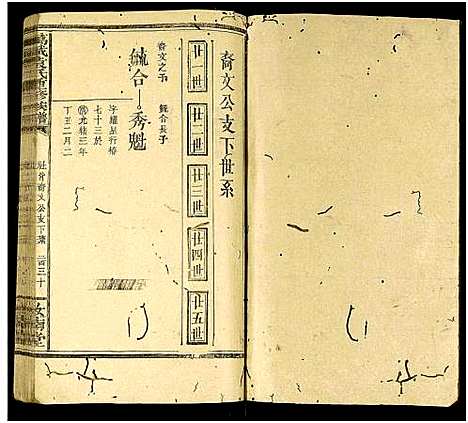 裔文公支下世系
廿一世
廿二世
廿三世
廿四世
廿五世
裔文之子
毓合
毓合長子
秀魁
字耀
行椿
七十三於
光緒三年
丁丑二月二
氏
修族譜
裔文公支下
三十
堂